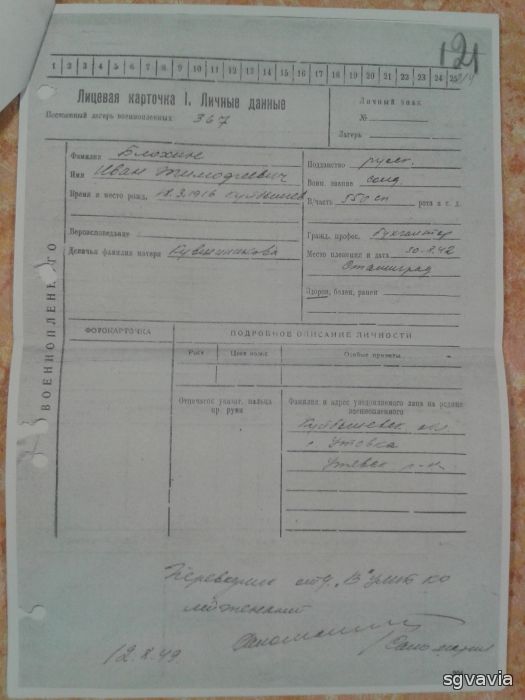 121
1 2 3 4 5 6 7 8 9 10 11 12 13 14 15 16 17 18 19 20 21 22 23 24 25
Лицевая карточка I. Личные данные
Постоянный лагерь военнопленных 367
Личный знак
№
Лагерь
ВОЕННОПЛЕННОГО
Фамилия Блохин
Имя Иван Тимофеевич
Время и место рожд. 18.3.1916 Куйбышев
Вероисповедание
Девичья фамилия матери
Подданство русск.
Воин. звание солд.
В/часть 550 сп рота и т. д.
Гражд. профес. Бухгалтер
Место пленения и дата 30.8.42
Сталинград
Здоров, болен, ранен
ФОТОКАРТОЧКА
ПОДРОБНОЕ ОПИСАНИЕ ЛИЧНОСТИ
Рост Цвет волос Особые приметы
Отпечаток указат. пальца
пр. руки
Фамилия и адрес уведомляемого лица на родине
военнопленного
Куйбышевск. обл.
с. Утевка
Утевск. р-н
Перевод
12.8.49
sgvavia